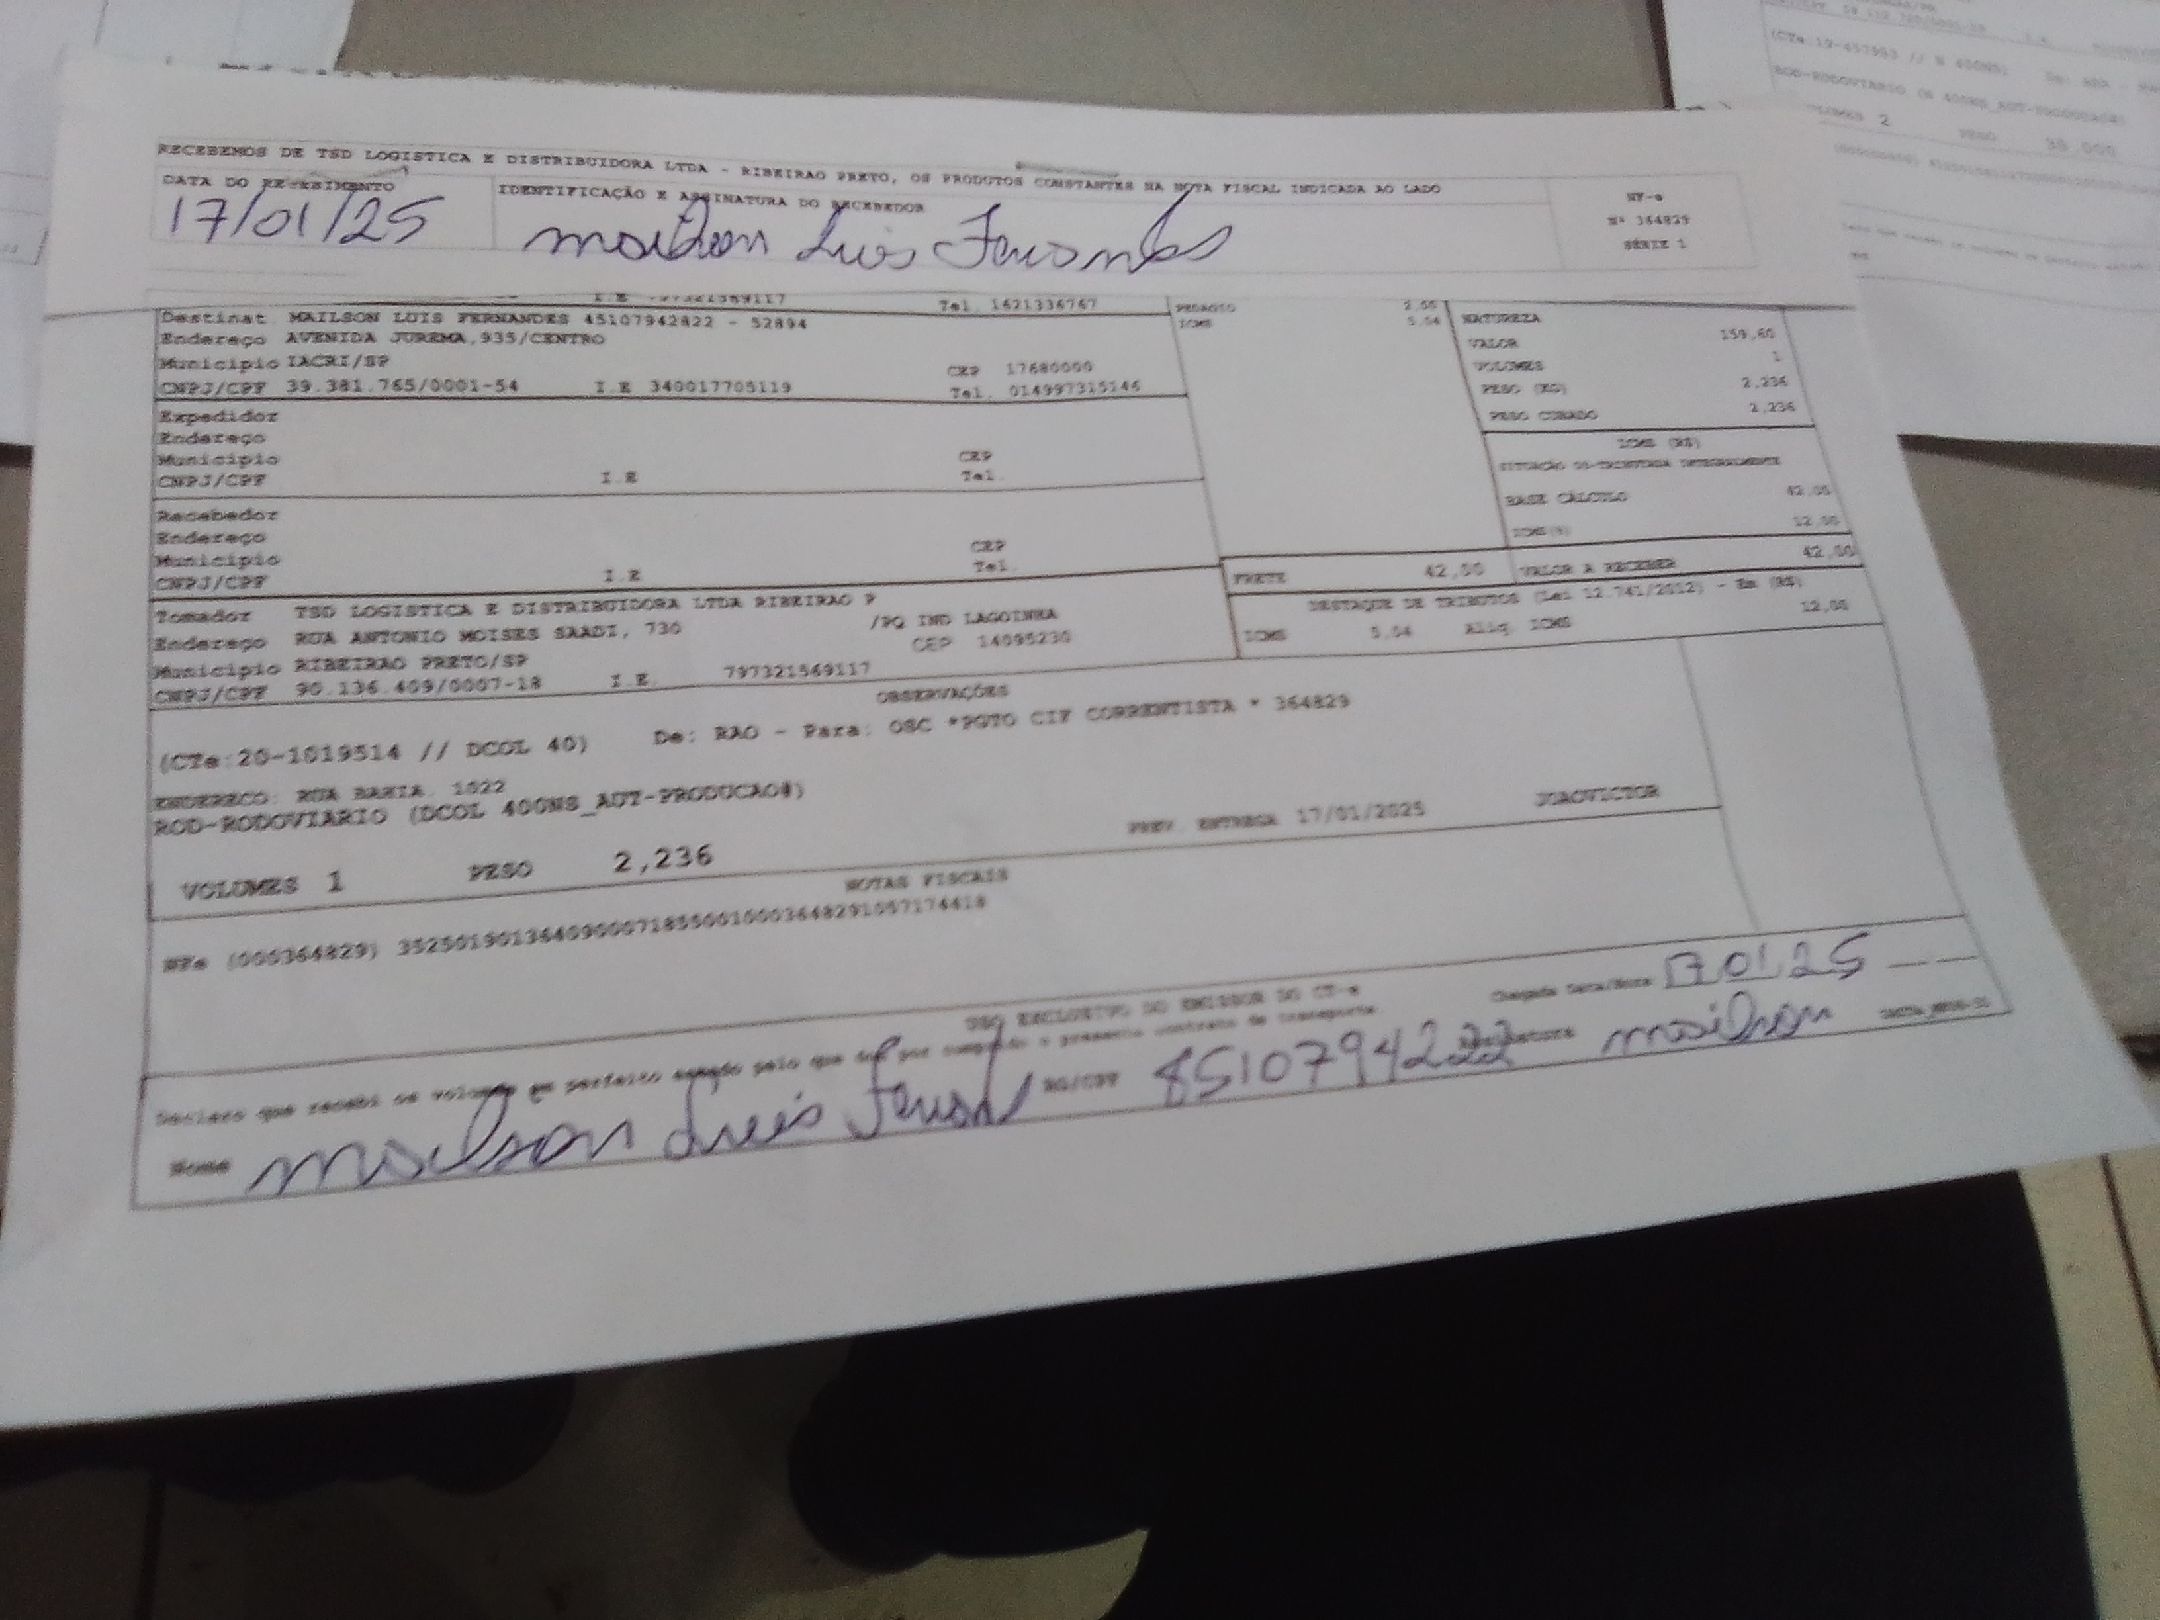 RECEBEMOS DE TSD LOGISTICA E DISTRIBUIDORA LTDA - RIBEIRAO PRETO, OS PRODUTOS CONSTANTES NA NOTA FISCAL INDICADA AO LADO
DATA DO RECEBIMENTO
17/01/25
IDENTIFICAÇÃO E ASSINATURA DO RECEBEDOR
Mailson Luis Fernandes
NF-e
Nº 364829
SÉRIE 1
I.E 797321569117 Tel. 1621336767
Destinat. MAILSON LUIS FERNANDES 45107942822 - 52894
Endereço AVENIDA JUREMA,935/CENTRO
Municipio IACRI/SP CEP 17680000
CNPJ/CPF 39.381.765/0001-54 I.E 340017705119 Tel. 014997315146
Expedidor
Endereço
Municipio CEP
CNPJ/CPF I.E Tel.
Recebedor
Endereço
Municipio CEP
CNPJ/CPF I.E Tel.
Tomador TSD LOGISTICA E DISTRIBUIDORA LTDA RIBEIRAO P
Endereço RUA ANTONIO MOISES SAADI, 730 /PQ IND LAGOINHA
Municipio RIBEIRAO PRETO/SP CEP 14095230
CNPJ/CPF 90.136.409/0007-18 I.E. 797321569117
PEDAGIO
ICMS 5,04
NATUREZA
VALOR 159,60
VOLUMES 1
PESO (KG) 2,236
PESO CUBADO 2,236
ICMS (R$)
SITUAÇÃO 00-TRIBUTADA INTEGRALMENTE
BASE CÁLCULO 42,00
ICMS(%) 12,00
FRETE 42,00 VALOR A RECEBER 42,00
DESTAQUE DE TRIBUTOS (Lei 12.741/2012) - Em (R$)
ICMS 5,04 Aliq. ICMS 12,00
OBSERVAÇÕES
(CTe:20-1019514 // DCOL 40) De: RAO - Para: OSC *PGTO CIF CORRENTISTA * 364829
ENDERECO: RUA BAHIA, 1022
ROD-RODOVIARIO (DCOL 400NS_AUT-PRODUCAO#)
VOLUMES 1 PESO 2,236 PREV. ENTREGA 17/01/2025 JOAOVICTOR
NOTAS FISCAIS
NFe (000364829) 35250190136409000718550010003648291057174418
USO EXCLUSIVO DO EMISSOR DO CT-e
Declaro que recebi os volumes em perfeito estado pelo que dou por cumprido o presente contrato de transporte.
Chegada Data/Hora 17 01 25
Nome Mailson Luis Fernand RG/CPF 4510794222 Assinatura Mailson